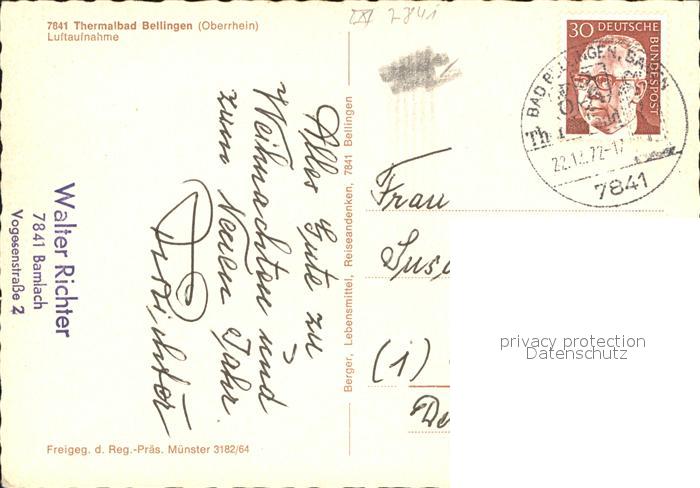 7841 Thermalbad Bellingen (Oberrhein)
Luftaufnahme
7841
30 DEUTSCHE
BUNDESPOST
BAD BELLINGEN, BADEN
22.12.72-17
7841
Alles Gute zu
Weihnachten und
zum Neuen Jahr.
Walter Richter
7841 Bamlach
Vogesenstraße 2
Berger, Lebensmittel, Reiseandenken, 7841 Bellingen
Frau
(1)
privacy protection
Datenschutz
Freigeg. d. Reg.-Präs. Münster 3182/64